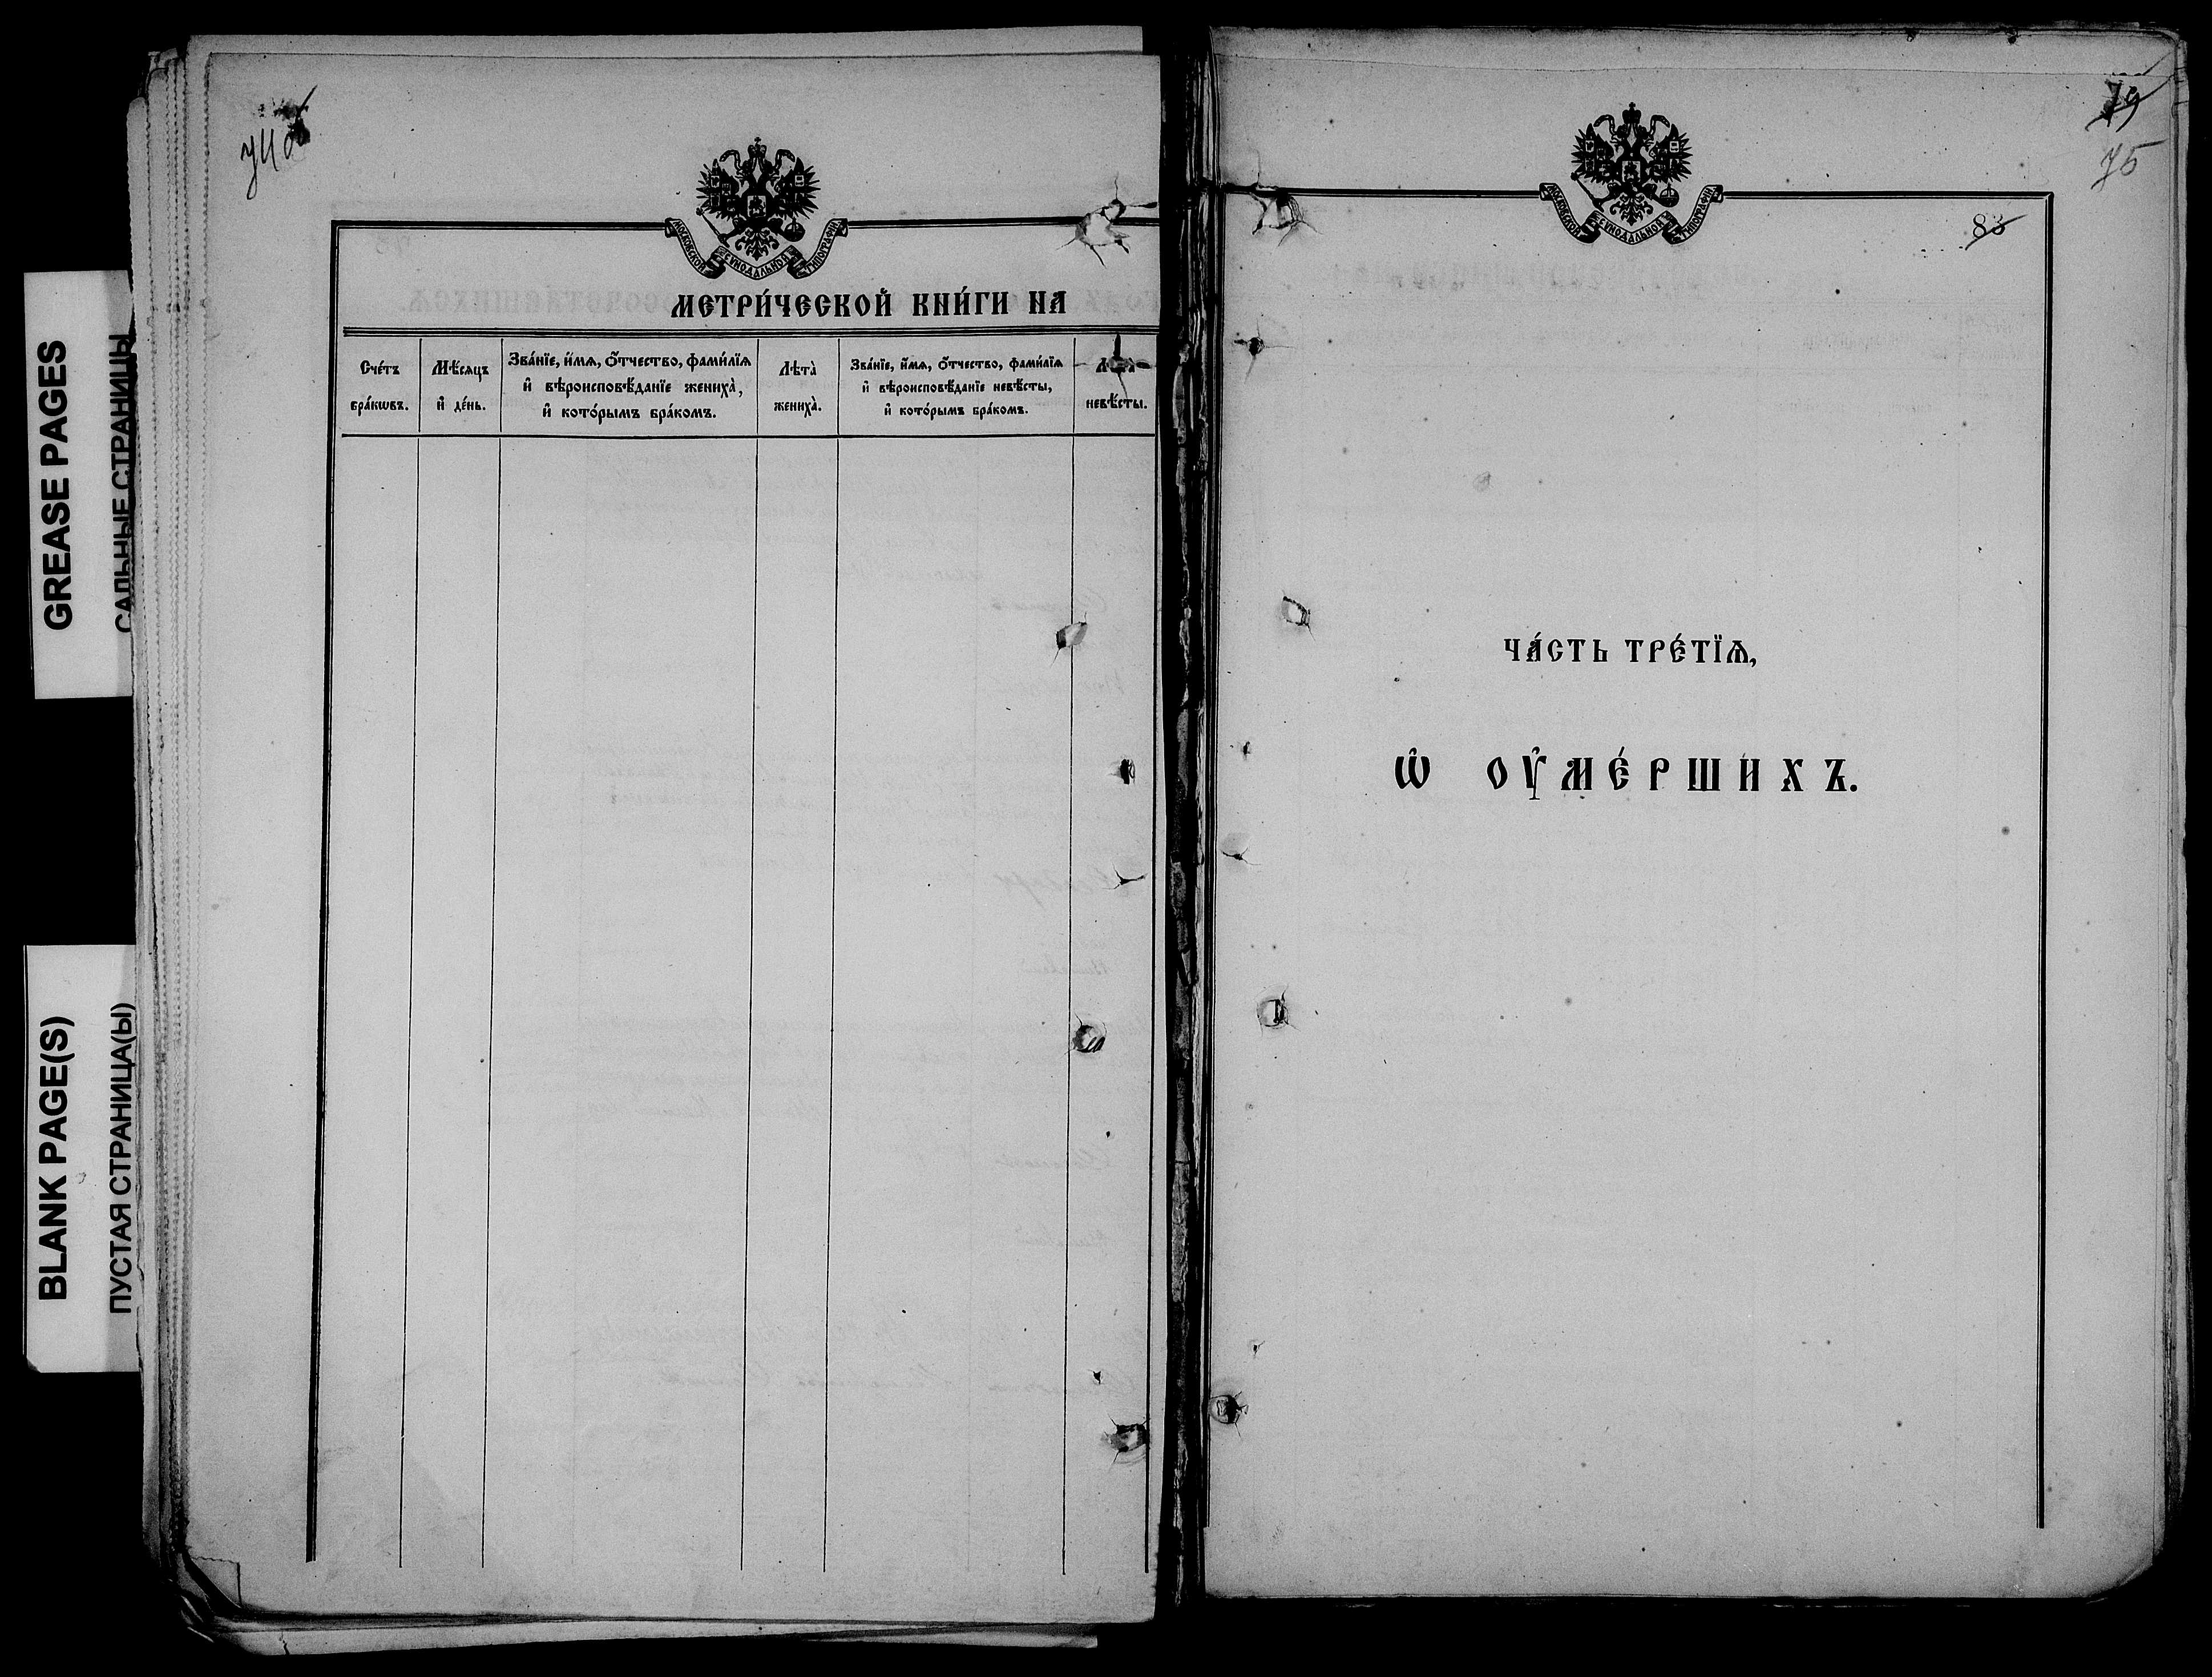 GREASE PAGES
САЛЬНЫЕ СТРАНИЦЫ
BLANK PAGE(S)
ПУСТАЯ СТРАНИЦА(Ы)
74об
МОСКОВСКОЙ СѴНОДАЛЬНОЙ ТИПОГРАФІИ
МЕТРИ́ЧЕСКОЙ КНИ́ГИ НА
Сче́тъ бра́кѡвъ.
Мѣ́сяцъ и҆ де́нь.
Зва́нїе, и҆́мѧ, ѻ҆́тчество, фами́лїѧ
и҆ вѣроисповѣ́данїе жениха̀,
и҆ кото́рымъ бра́комъ.
Лѣта̀ жениха̀.
Зва́нїе, и҆́мѧ, ѻ҆́тчество, фами́лїѧ
и҆ вѣроисповѣ́данїе невѣ́сты,
и҆ кото́рымъ бра́комъ.
Лѣта̀ невѣ́сты.
79
75
МОСКОВСКОЙ СѴНОДАЛЬНОЙ ТИПОГРАФІИ
83
ЧА́СТЬ ТРЕ́ТЇѦ,
Ѡ҆ ОУ҆МЕ́РШИХЪ.